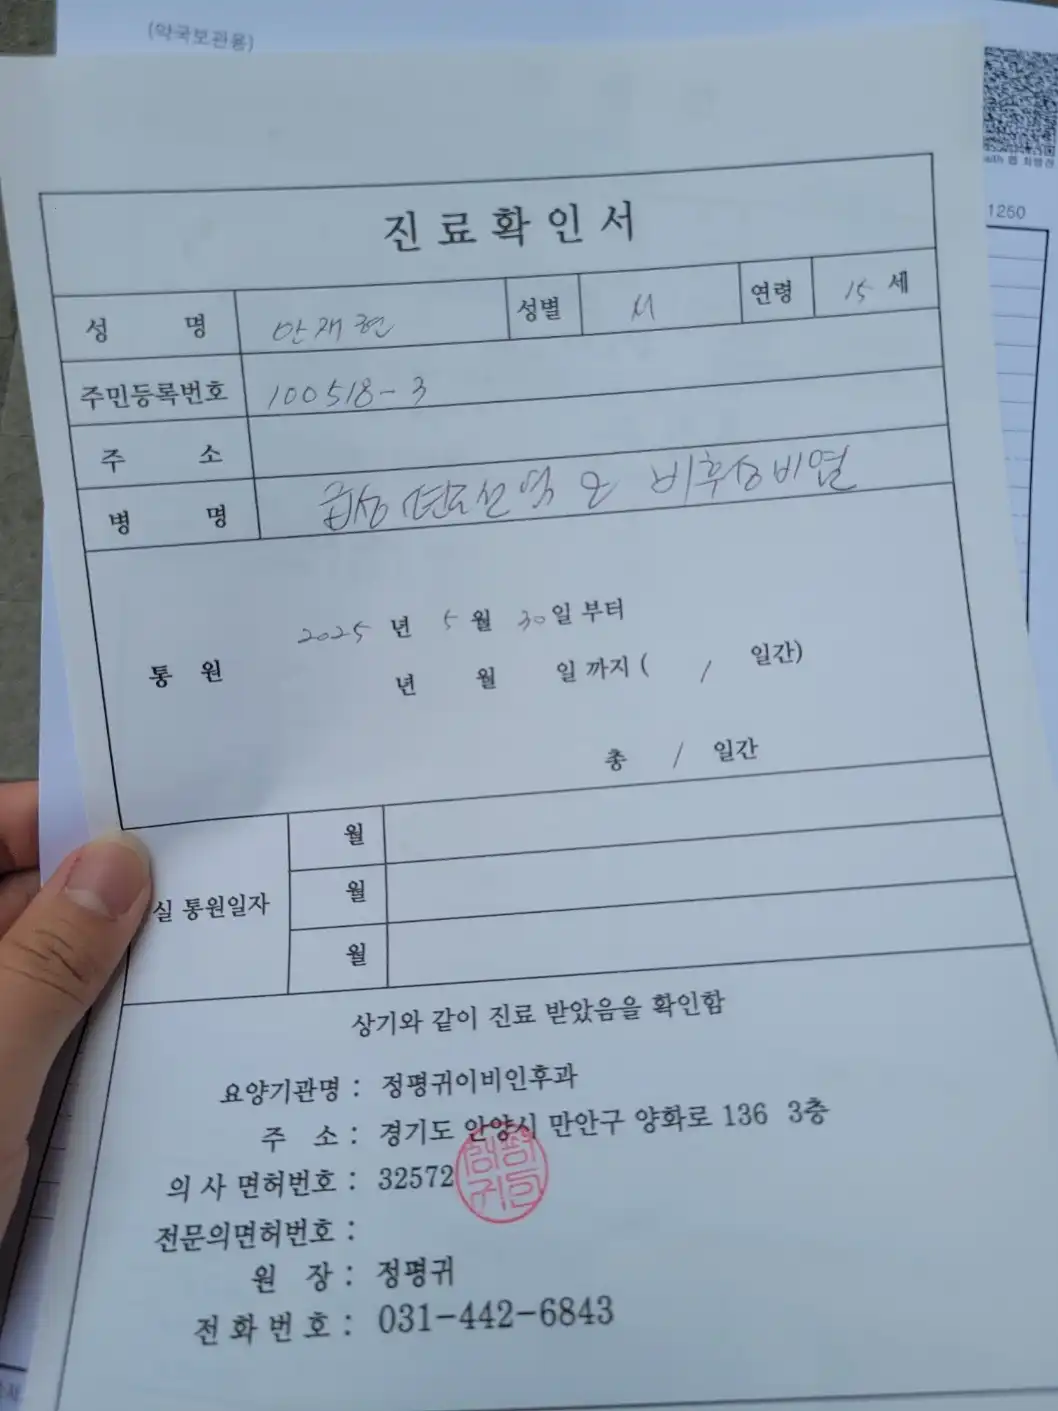 (약국보관용)
1250
진료확인서
성 명 안재현 성별 M 연령 15 세
주민등록번호 100518-3
주 소
병 명 급성 편도선염 & 비후성비염
2025 년 5 월 30일 부터
통 원
년 월 일 까지 ( / 일간)
총 / 일간
월
실 통원일자 월
월
상기와 같이 진료 받았음을 확인함
요양기관명 : 정평귀이비인후과
주 소 : 경기도 안양시 만안구 양화로 136 3층
의 사 면허번호 : 32572
전문의면허번호 :
원 장 : 정평귀
전 화 번 호 : 031-442-6843